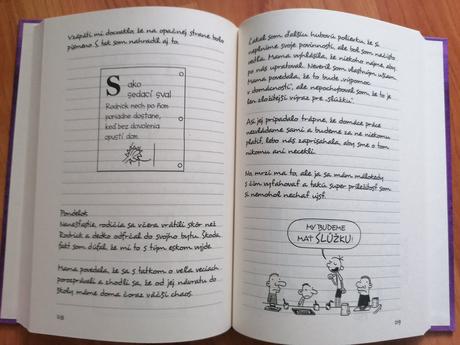 Vzápätí mi docvaklo, že na opačnej strane bolo
písmeno S, tak som nahradil aj to.
S ako
sedací sval
Rodrick nech po ňom
poriadne dostane,
keď bez dovolenia
opustí dom.
Pondelok
Nanešťastie, rodičia sa včera vrátili skôr než
Rodrick a dedko odfrčal do svojho bytu. Škoda,
fakt som dúfal, že mi to s tým eskom vyjde.
Mama povedala, že sa s tatkom o veľa veciach
porozprávali a zhodli sa, že od jej návratu do
školy máme doma čoraz väčší chaos.
218
Čakal som ďalšiu hubovú polievku, že si
neplníme svoje povinnosti, ale bol som načisto
vedľa. Mama vyhlásila, že niekoho najme, aby
po nás upratoval. Neveril som vlastným ušiam.
Mama povedala, že to bude „výpomoc
v domácnosti", ale nepochyboval som, že to je
len zložitejší výraz pre „slúžku".
Asi jej pripadalo trápne, že domáce práce
nezvládame sami a budeme za ne niekomu
platiť, lebo nás zaprisahala, aby sme o tom
nikomu ani necekli.
No mrzí ma to, ale ja sa mám málokedy
s čím vyťahovať a takú super príležitosť som
si nemohol nechať ujsť.
MY BUDEME
MAŤ SLÚŽKU!
219